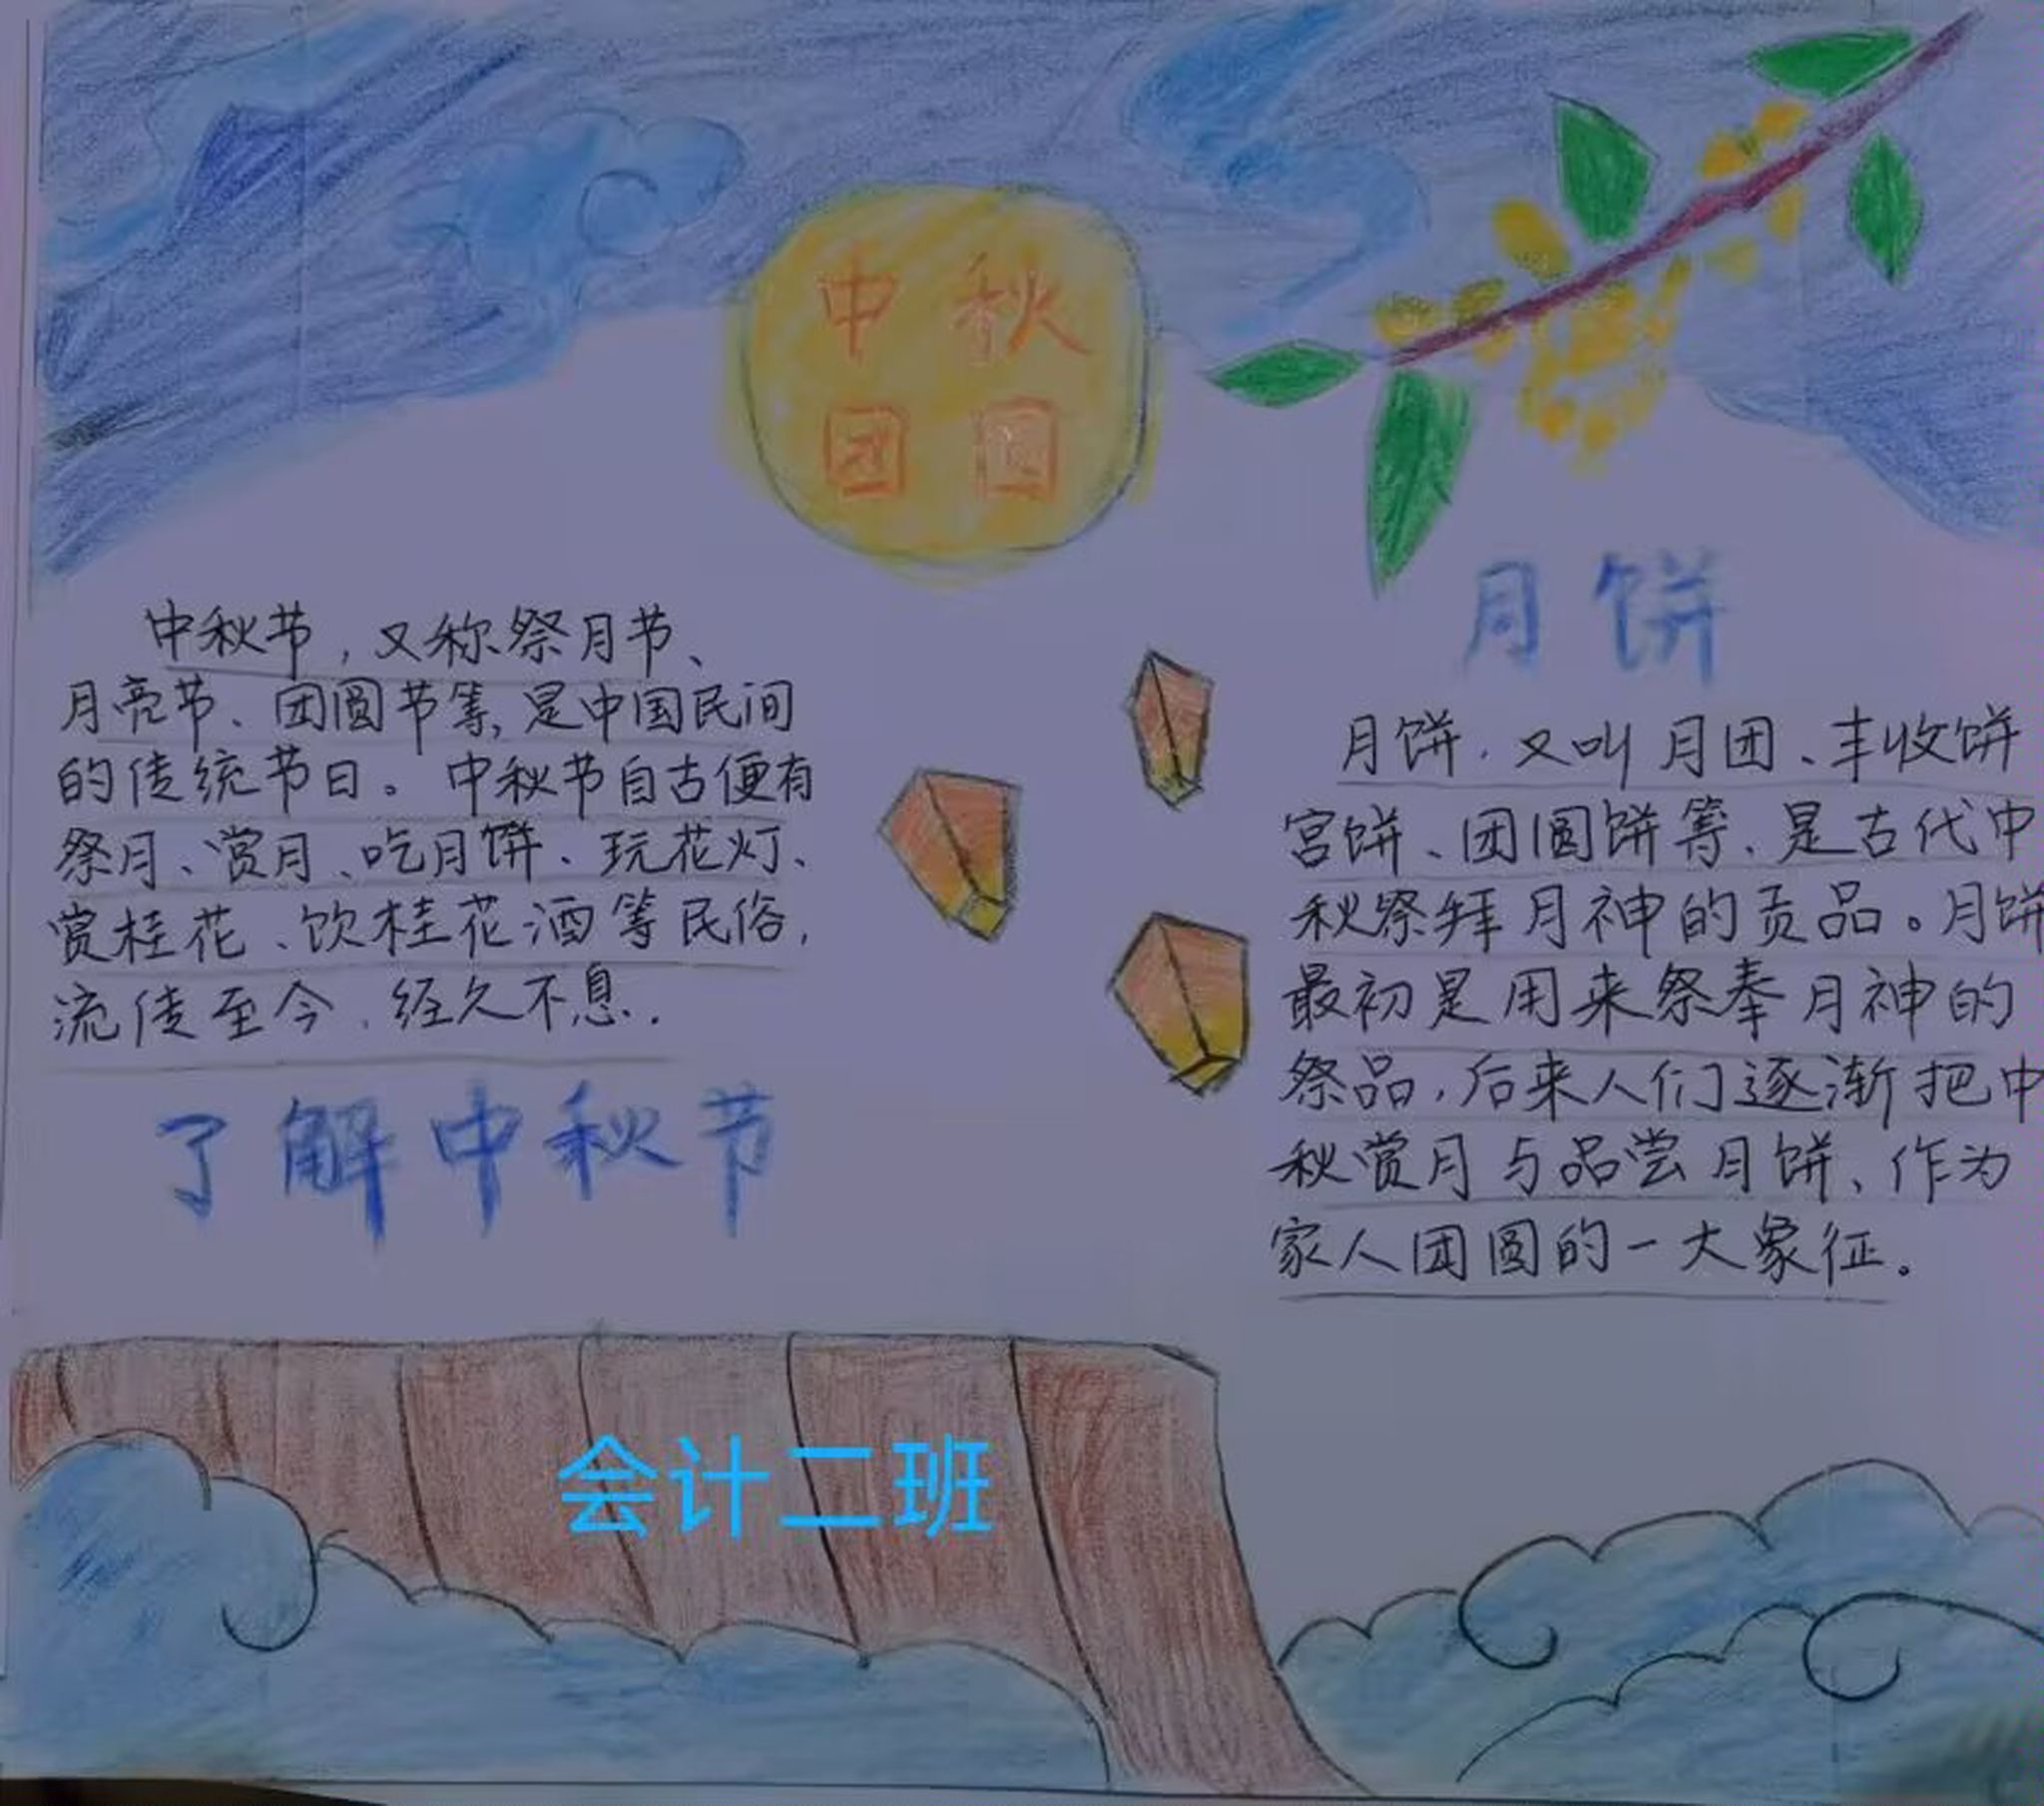 中秋
团圆
中秋节，又称祭月节、
月亮节、团圆节等，是中国民间
的传统节日。中秋节自古便有
祭月、赏月、吃月饼、玩花灯、
赏桂花、饮桂花酒等民俗，
流传至今，经久不息.
了解中秋节
月饼
月饼，又叫月团、丰收饼
宫饼、团圆饼等、是古代中
秋祭拜月神的贡品。月饼
最初是用来祭奉月神的
祭品，后来人们逐渐把中
秋赏月与品尝月饼、作为
家人团圆的一大象征。
会计二班